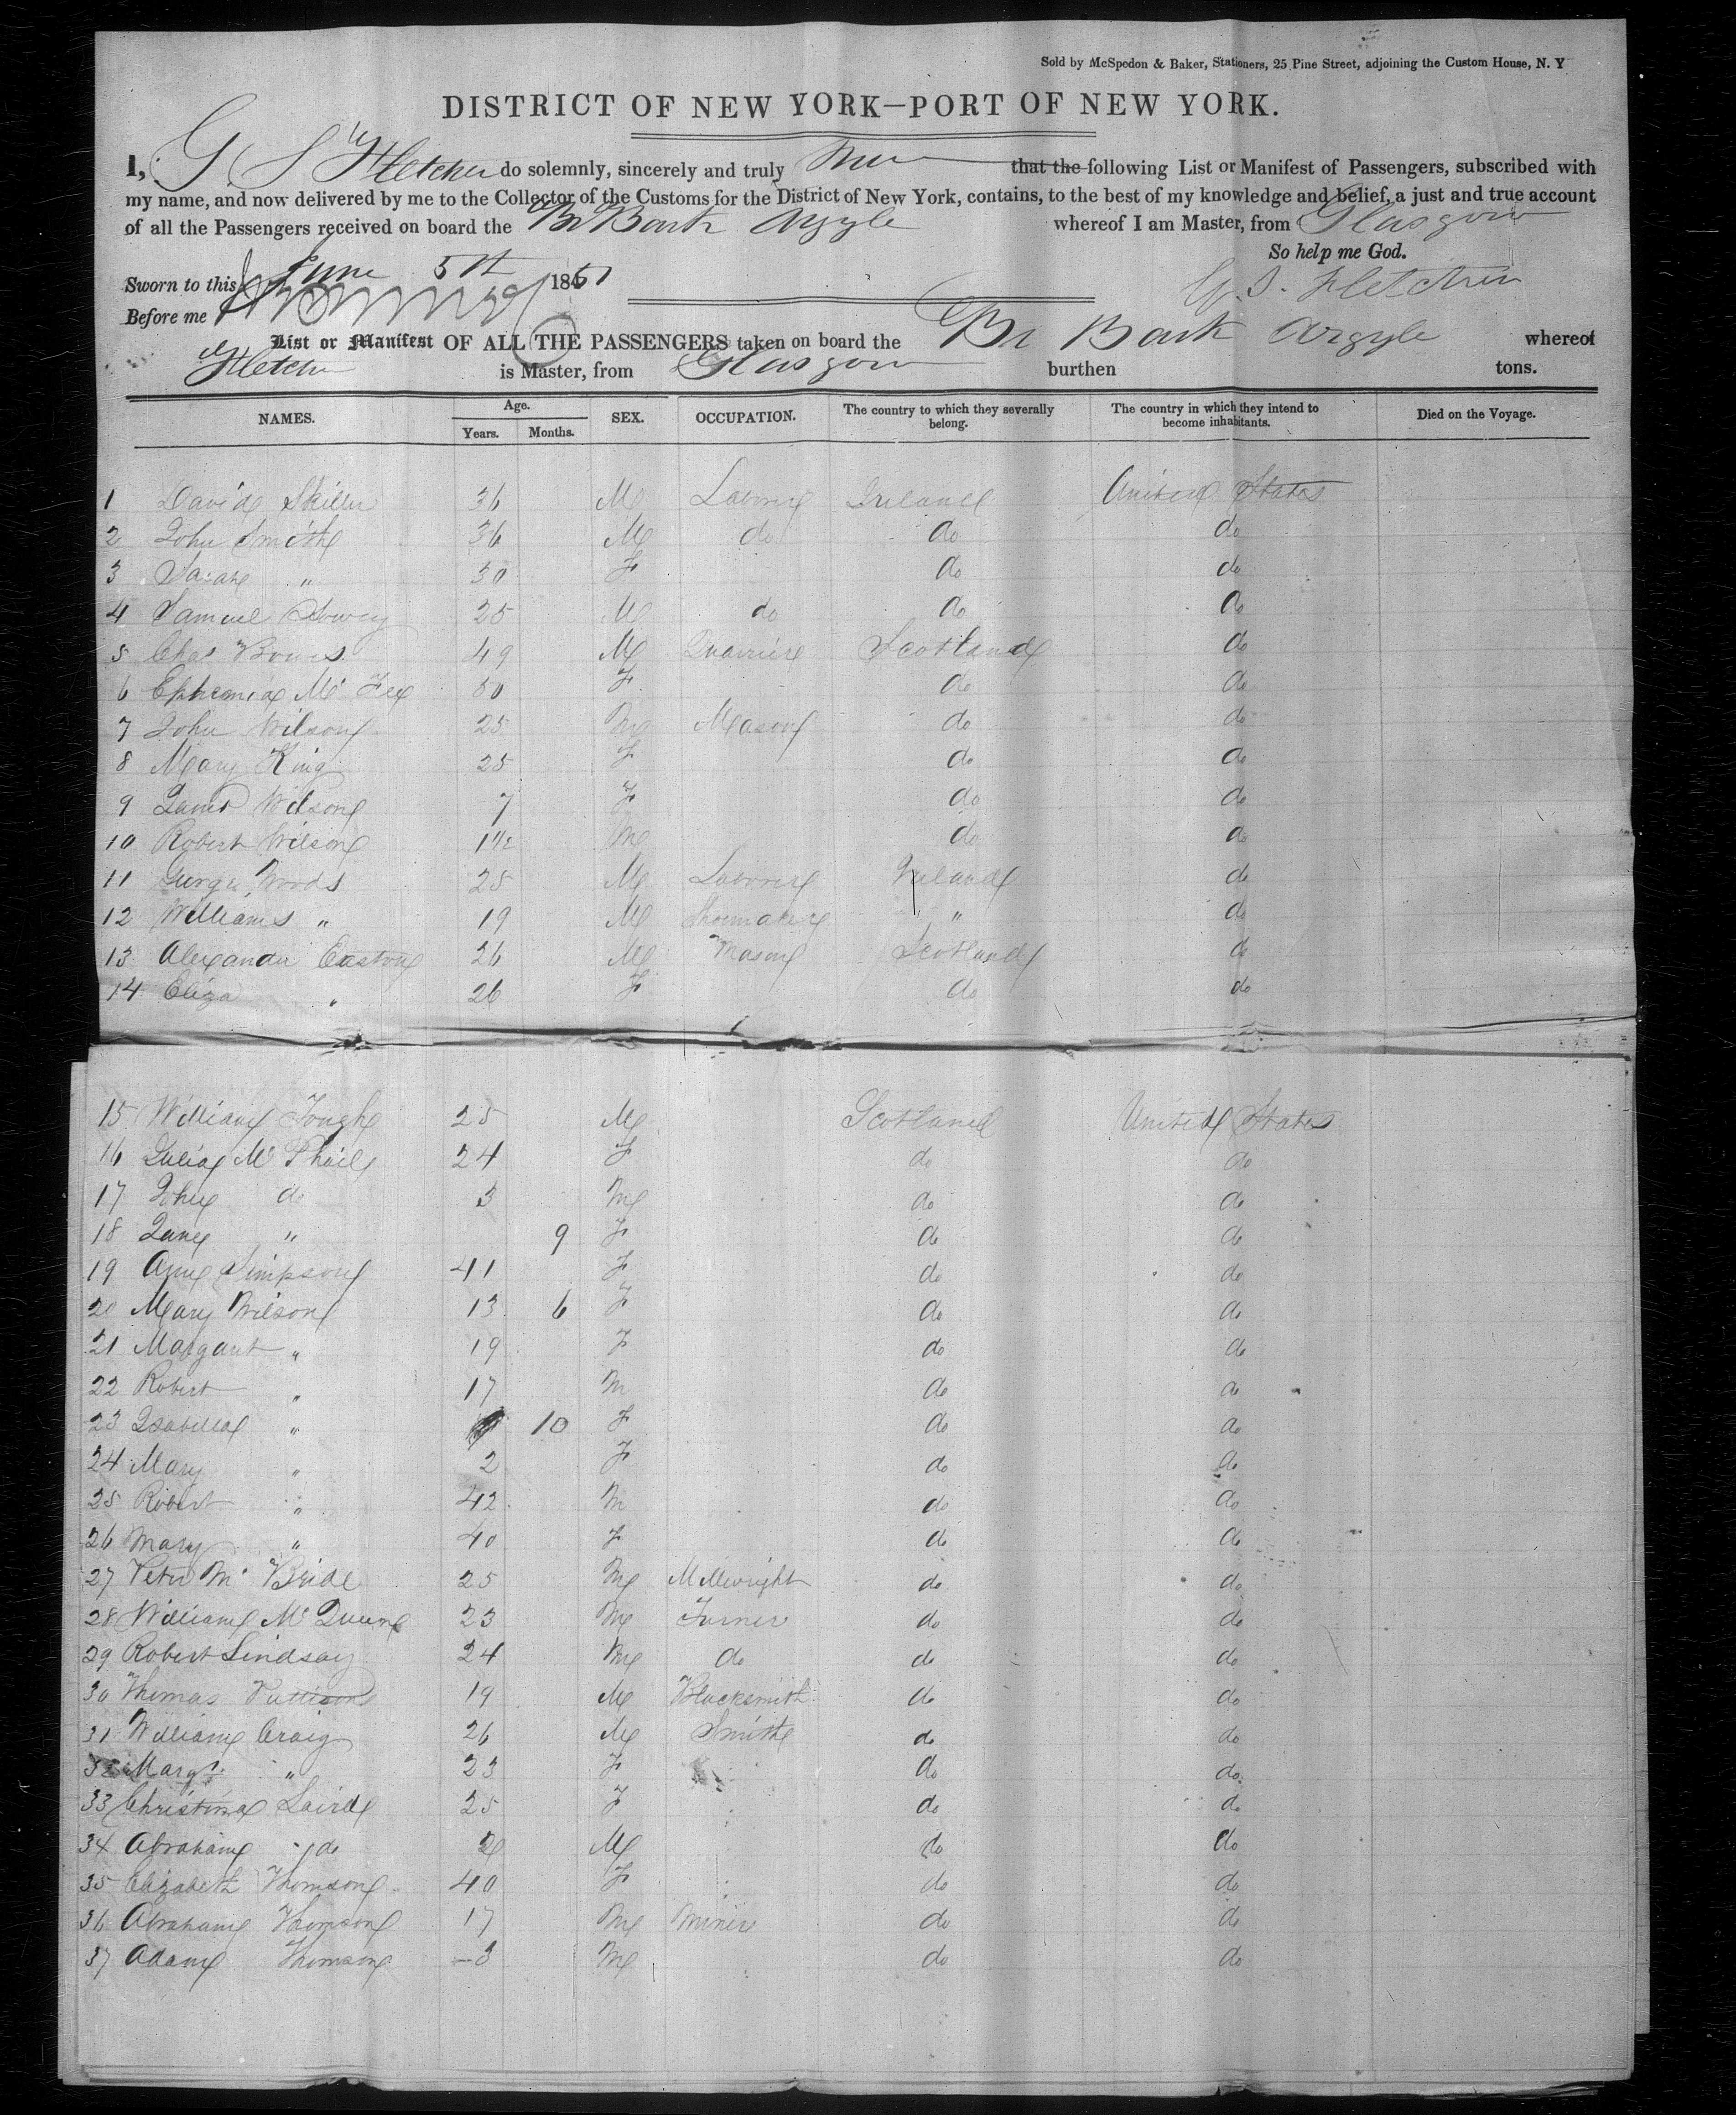 Sold by McSpedon & Baker, Stationers, 25 Pine Street, adjoining the Custom House, N. Y
DISTRICT OF NEW YORK—PORT OF NEW YORK.
I, G S Fletcher do solemnly, sincerely and truly that the following List or Manifest of Passengers, subscribed with
my name, and now delivered by me to the Collector of the Customs for the District of New York, contains, to the best of my knowledge and belief, a just and true account
of all the Passengers received on board the Br Bark Argyle whereof I am Master, from Glasgow
So help me God.
Sworn to this June 5th 1861 G. S. Fletcher
Before me
List or Manifest OF ALL THE PASSENGERS taken on board the Br Bark Argyle whereof
Fletcher is Master, from Glasgow burthen tons.
NAMES. Age. Years. Months. SEX. OCCUPATION. The country to which they severally belong. The country in which they intend to become inhabitants. Died on the Voyage.
1 David 36 M Laborer Ireland United States
2 John Smith 36 M do do do
3 Sarah " 30 F do do
4 Samuel 25 M do do do
5 Chas 49 M Quarrier Scotland do
6 Mc Fee 50 F do do
7 John Wilson 25 M Mason do do
8 Mary King 25 F do do
9 Wilson 7 F do do
10 Robert Wilson 1 1/2 M do do
11 George Woods 25 M Laborer Ireland do
12 Williams " 19 M Shoemaker " do
13 Alexander Easton 26 M Mason Scotland do
14 Eliza " 26 F do do
15 William Tough 25 M Scotland United States
16 Julia Mc Phail 24 F do do
17 John do 3 M do do
18 Jane " 9 F do do
19 Ann Simpson 41 F do do
20 Mary Wilson 13 6 F do do
21 Margaret " 19 F do do
22 Robert " 17 M do do
23 Isabella " 10 F do do
24 Mary " 2 F do do
25 Robert " 42 M do do
26 Mary " 40 F do do
27 Peter Mc Bride 25 M Millwright do do
28 William Mc Queen 23 M Turner do do
29 Robert Lindsay 24 M do do do
30 Thomas Pattison 19 M Blacksmith do do
31 William Craig 26 M Smith do do
32 Margt " 23 F do do
33 Christina Laird 25 F do do
34 Abraham do M do do
35 Elizabeth Thomson 40 F do do
36 Abraham Thomson 17 M Miner do do
37 Adam Thomson 3 M do do